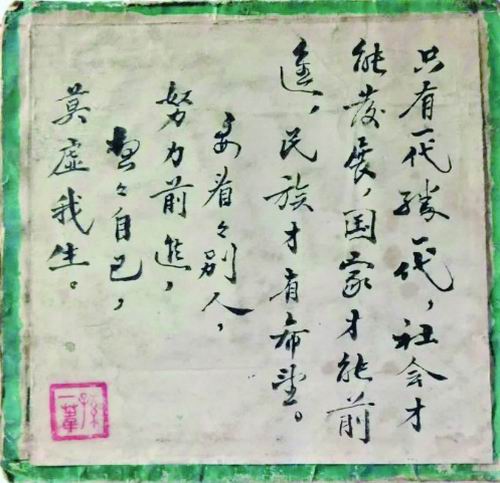 只有一代勝一代，社会才
能發展，国家才能前
進，民族才有希望。
要看々别人，
努力前進，
々自己，
莫虚我生。
孫
一葦